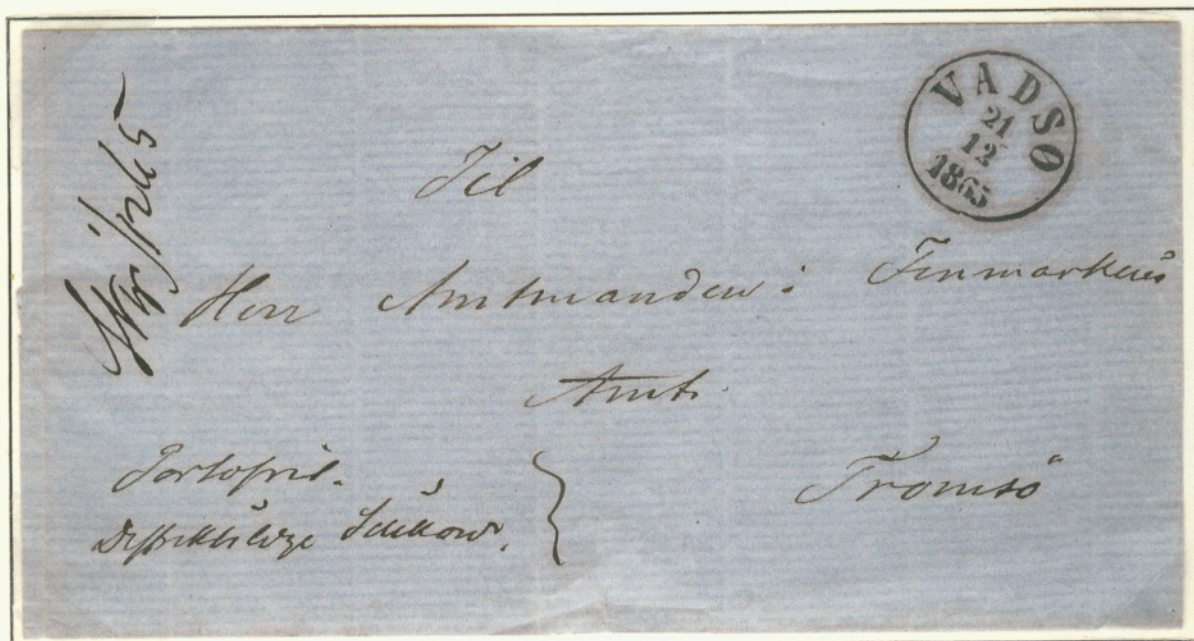 VADSØ
21
12
1865
Til
Herr Amtmanden i Finmarkens
Amt.
Tromsö
Portofrit.